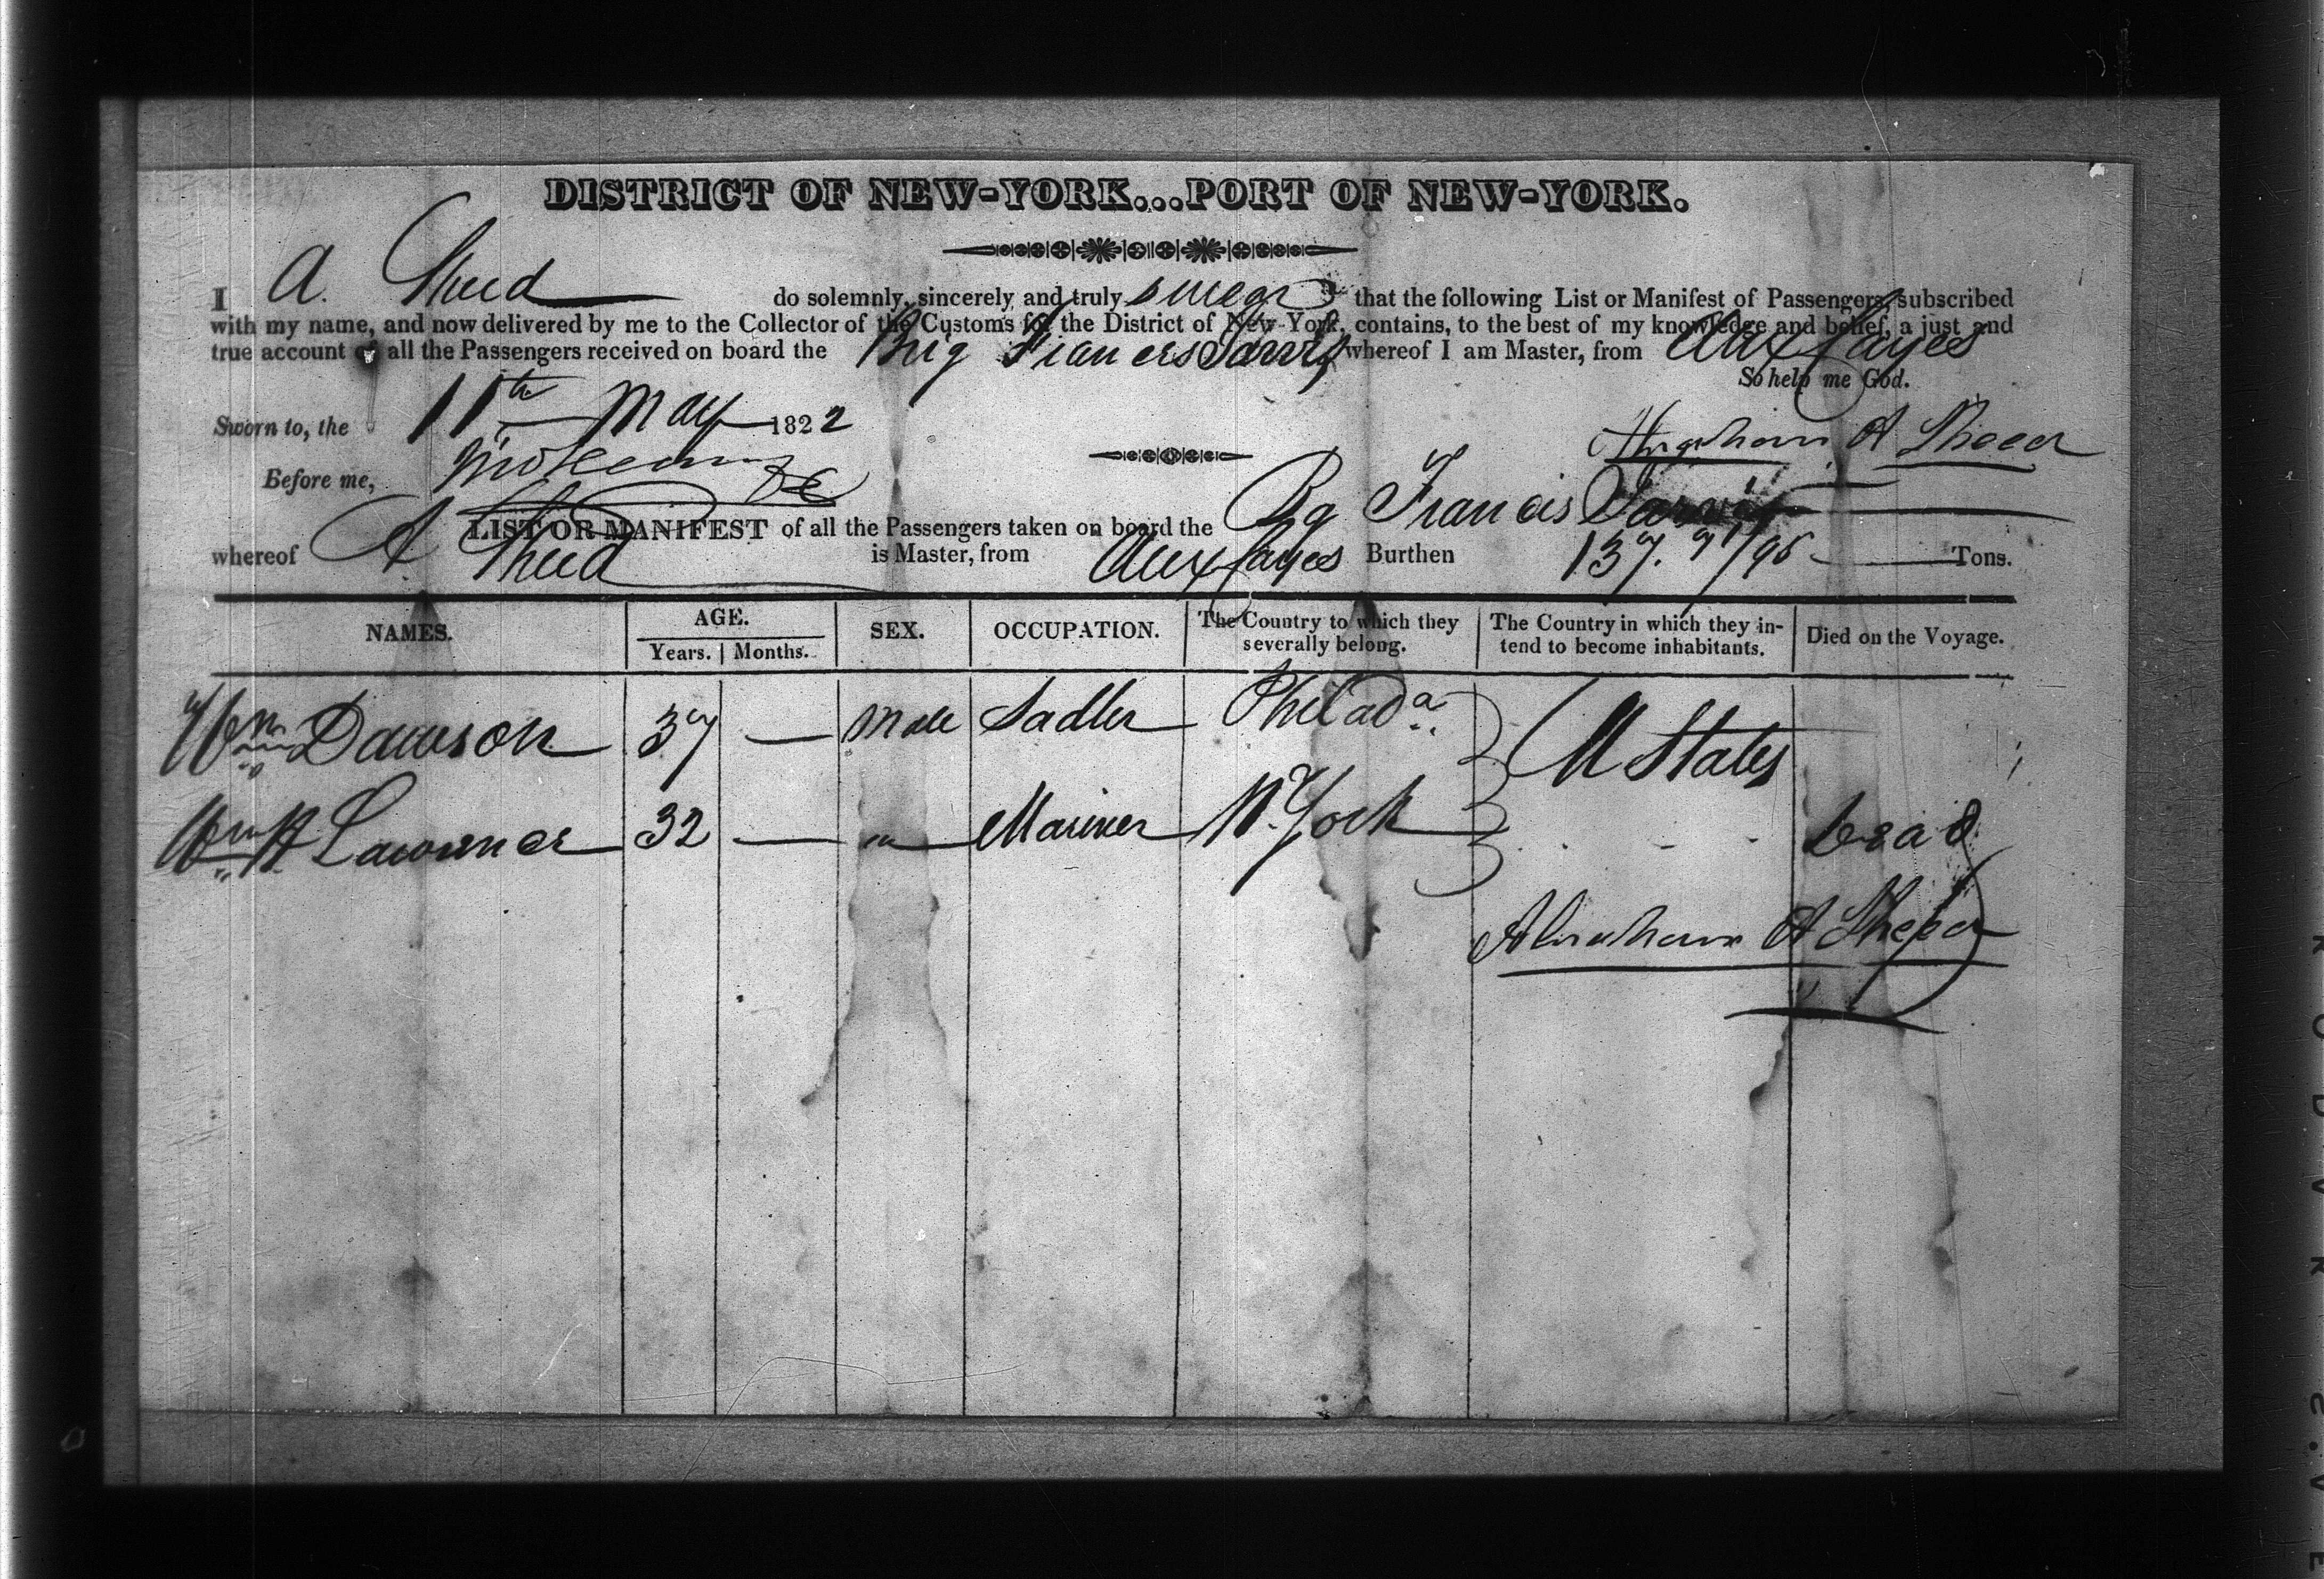 DISTRICT OF NEW-YORK...PORT OF NEW-YORK.
I A. Sheed do solemnly, sincerely and truly swear that the following List or Manifest of Passengers, subscribed
with my name, and now delivered by me to the Collector of the Customs for the District of New-York, contains, to the best of my knowledge and belief, a just and
true account of all the Passengers received on board the Brig Francis Jarvis whereof I am Master, from Aux Cayes
So help me God.
Sworn to, the 11th May 1822
Abraham A
Before me,
LIST OR MANIFEST of all the Passengers taken on board the Bg Francis Jarvis
whereof A Sheed is Master, from Aux Cayes Burthen 137. 91/95 Tons.
NAMES. AGE. SEX. OCCUPATION. The Country to which they severally belong. The Country in which they intend to become inhabitants. Died on the Voyage.
Years. Months.
Wm Dawson 37 — Male Sadler Philada. U States
Wm H Lawrence 32 — " Mariner N. York Dead
Abraham A